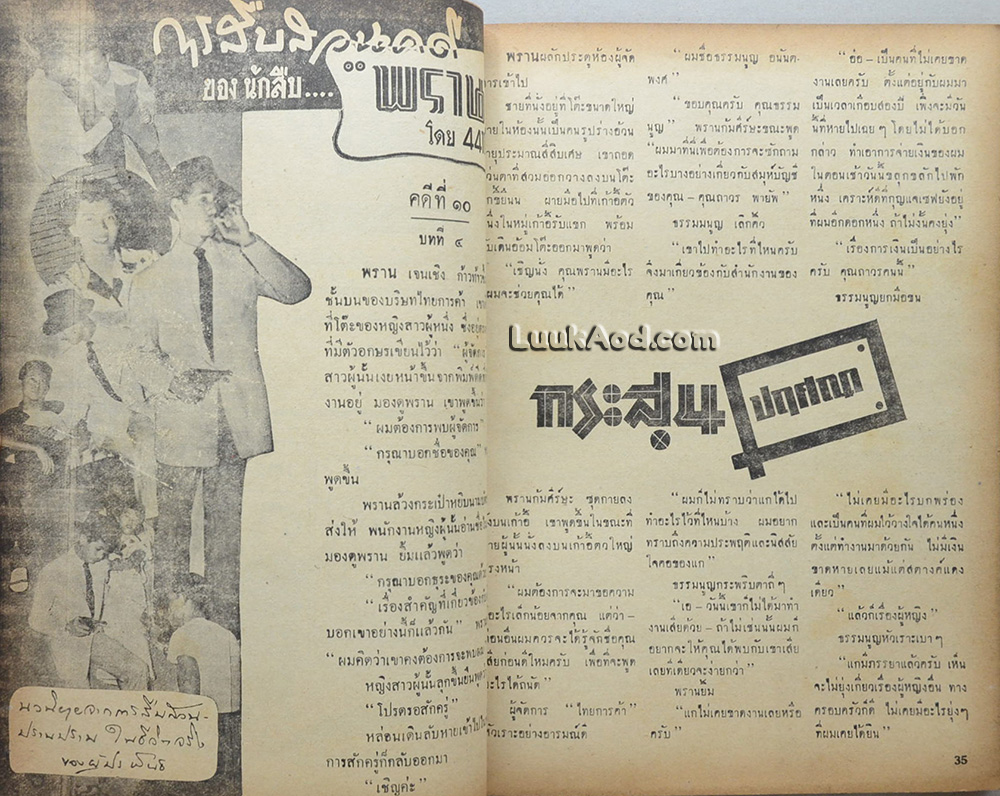 การสืบสวนคดี
ของ นักสืบ....
พราน
โดย 44
คดีที่ ๑๐
บทที่ ๔
พราน เจนเชิง ก้าว
ชั้นบนของบริษัทไทยการค้า
ที่โต๊ะของหญิงสาวผู้หนึ่ง ซึ่งอยู่
ที่มีตัวอักษรเขียนไว้ว่า “ ผู้จัดการ
สาวผู้นั้นเงยหน้าขึ้นจากพิมพ์ดีด
งานอยู่ มองดูพราน เขาพูดขึ้น
“ ผมต้องการพบผู้จัดการ ”
“ กรุณาบอกชื่อของคุณ ”
พูดขึ้น
พรานล้วงกระเป๋าหยิบนามบัตร
ส่งให้ พนักงานหญิงผู้นั้นอ่านชื่อ
มองดูพราน ยิ้มแล้วพูดว่า
“ กรุณาบอกธุระของคุณด้วย
“ เรื่องสำคัญที่เกี่ยวข้องกับ
บอกเขาอย่างนี้ก็แล้วกัน ”
“ ผมคิดว่าเขาคงต้องการจะพบ
หญิงสาวผู้นั้นลุกขึ้นยืนพูด
“ โปรดรอสักครู่ ”
หล่อนเดินลับหายเข้าไปใน
การสักครู่ก็กลับออกมา
“ เชิญค่ะ ”
นวนิยายจากการสืบสวน-
ปราบปราม ในชีวิตจริง
พรานผลักประตูห้องผู้จัด
การเข้าไป
ชายที่นั่งอยู่ที่โต๊ะขนาดใหญ่
ายในห้องนั้นเป็นคนรูปร่างอ้วน
ายุประมาณสี่สิบเศษ เขาถอด
ว่นตาที่สวมออกวางลงบนโต๊ะ
ุกขึ้นยืน ผายมือไปที่เก้าอี้ตัว
นึ่งในหมู่เก้าอี้รับแขก พร้อม
ับเดินอ้อมโต๊ะออกมาพูดว่า
“ เชิญนั่ง คุณพรานมีอะไร
ผมจะช่วยคุณได้ ”
“ ผมชื่อธรรมนูญ อนันต-
พงศ์ ”
“ ขอบคุณครับ คุณธรรม
นูญ ” พรานก้มศีรษะขณะพูด
“ ผมมาที่นี่เพื่อต้องการจะซักถาม
อะไรบางอย่างเกี่ยวกับสมุห์บัญชี
ของคุณ – คุณถาวร พายัพ ”
ธรรมนูญ เลิกคิ้ว
“ เขาไปทำอะไรที่ไหนครับ
จึงมาเกี่ยวข้องกับสำนักงานของ
คุณ ”
“ อ๋อ – เป็นคนที่ไม่เคยขาด
งานเลยครับ ตั้งแต่อยู่กับผมมา
เป็นเวลาเกือบสองปี เพิ่งจะมีวัน
นี้ที่หายไปเฉย ๆ โดยไม่ได้บอก
กล่าว ทำเอาการจ่ายเงินของผม
ในตอนเช้าวันนี้ขลุกขลักไปพัก
หนึ่ง เคราะห์ดีที่กุญแจเซฟยังอยู่
ที่ผมอีกดอกหนึ่ง ถ้าไม่งั้นคงยุ่ง ”
“ เรื่องการเงินเป็นอย่างไร
ครับ คุณถาวรคนนี้ ”
ธรรมนูญยกมือขึ้น
LuukAod.com
กระสุน
ปริศนา
พรานก้มศีรษะ ทรุดกายลง
ั่งบนเก้าอี้ เขาพูดขึ้นในขณะที่
ายผู้นั้นนั่งลงบนเก้าอี้ตัวใหญ่
รงหน้า
“ ผมต้องการจะมาขอความ
ู้อะไรเล็กน้อยจากคุณ แต่ว่า –
่อนอื่นผมควรจะได้รู้จักชื่อคุณ
สียก่อนดีไหมครับ เพื่อที่จะพูด
ะไรได้ถนัด ”
ผู้จัดการ “ ไทยการค้า ”
หัวเราะอย่างอารมณ์ดี
“ ผมก็ไม่ทราบว่าแกได้ไป
ทำอะไรไว้ที่ไหนบ้าง ผมอยาก
ทราบถึงความประพฤติและนิสสัย
ใจคอของแก ”
ธรรมนูญกระพริบตาถี่ ๆ
“ เอ – วันนี้เขาก็ไม่ได้มาทำ
งานเสียด้วย – ถ้าไม่เช่นนั้นผมก็
อยากจะให้คุณได้พบกับเขาเสีย
เลยทีเดียวจะง่ายกว่า ”
พรานยิ้ม
“ แกไม่เคยขาดงานเลยหรือ
ครับ ”
“ ไม่เคยมีอะไรบกพร่อง
และเป็นคนที่ผมไว้วางใจได้คนหนึ่ง
ตั้งแต่ทำงานมาด้วยกัน ไม่มีเงิน
ขาดหายเลยแม้แต่สตางค์แดง
เดียว ”
“ แล้วก็เรื่องผู้หญิง ”
ธรรมนูญหัวเราะเบา ๆ
“ แกมีภรรยาแล้วครับ เห็น
จะไม่ยุ่งเกี่ยวเรื่องผู้หญิงอื่น ทาง
ครอบครัวก็ดี ไม่เคยมีอะไรยุ่งๆ
ที่ผมเคยได้ยิน ”
35